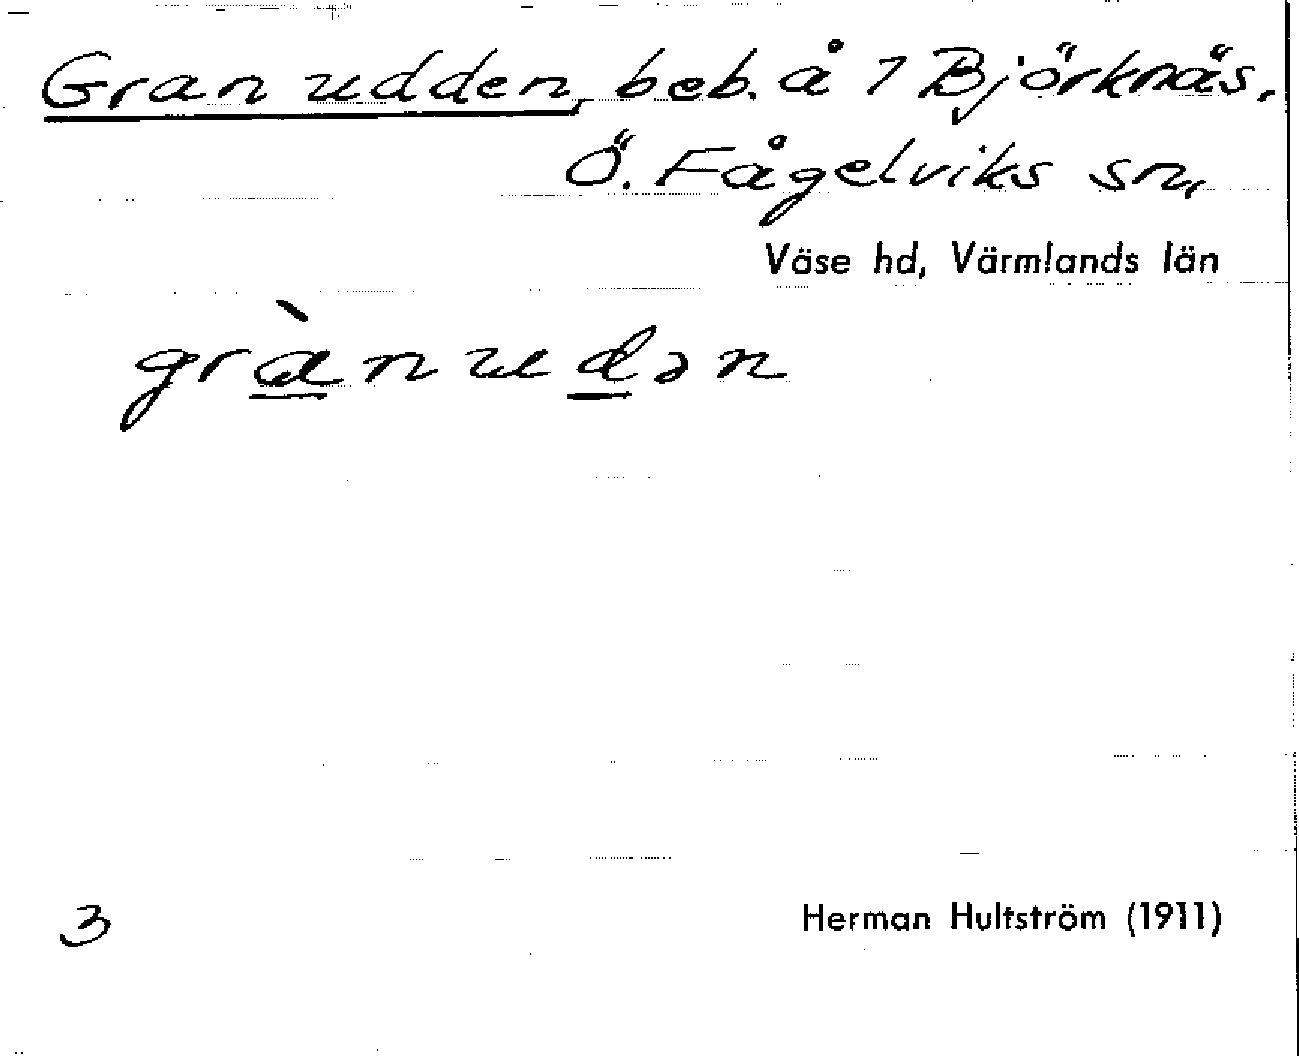 Granudden, beb. å 7 Björknäs,
Ö. Fågelviks sn,
Väse hd, Värmlands län
grànudən
3
Herman Hultström (1911)